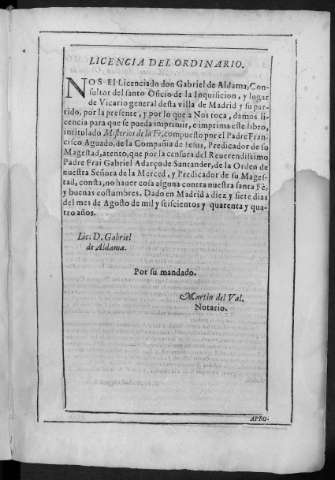 LICENCIA DEL ORDINARIO.
NOS El Licenciado don Gabriel de Aldama, Con-
sultor del santo Oficio de la Inquisicion, y lugar
de Vicario general desta villa de Madrid y su par-
tido, por la presente, y por lo que a Nos toca, damos li-
cencia para que se pueda imprimir, e imprima este libro,
intitulado Misterios de la Fe, compuesto por el Padre Fran-
cisco Aguado, de la Compañia de Iesus, Predicador de su
Magestad, atento, que por la censura del Reuerendissimo
Padre Frai Gabriel Adarço de Santander, de la Orden de
nuestra Señora de la Merced, y Predicador de su Mages-
tad, consta, no hauer cosa alguna contra nuestra santa Fè,
y buenas costumbres. Dado en Madrid a diez y siete dias
del mes de Agosto de mil y seiscientos y quarenta y qua-
tro años.
Lic. D. Gabriel
de Aldama.
Por su mandado.
Martin del Val.
Notario.
APRO-